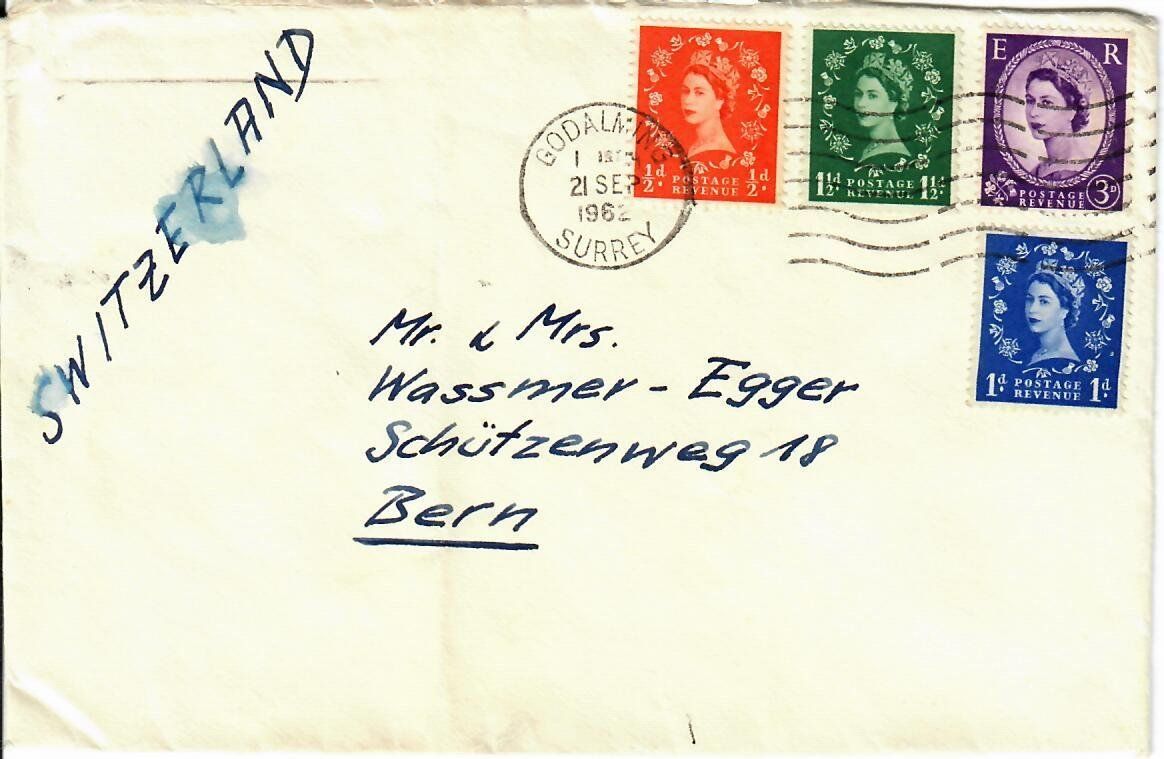 SWITZERLAND
GODALMING
21 SEP
1962
SURREY
½d POSTAGE REVENUE ½d
1½d POSTAGE REVENUE 1½d
E R
POSTAGE REVENUE 3D
1d POSTAGE REVENUE 1d
Mr. & Mrs.
Wassmer - Egger
Schützenweg 18
Bern